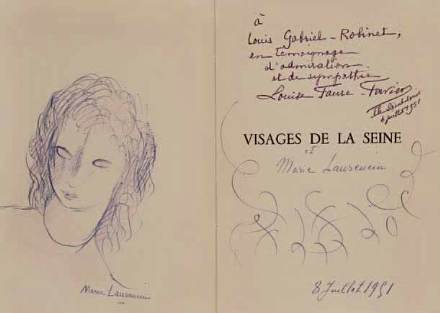 Marie Laurencin
à
Louis Gabriel-Robinet,
en témoignage
d'admiration
et de sympathie
Louise Faure-Favier
6 juillet 1951
VISAGES DE LA SEINE
et
Marie Laurencin
8 Juillet 1951